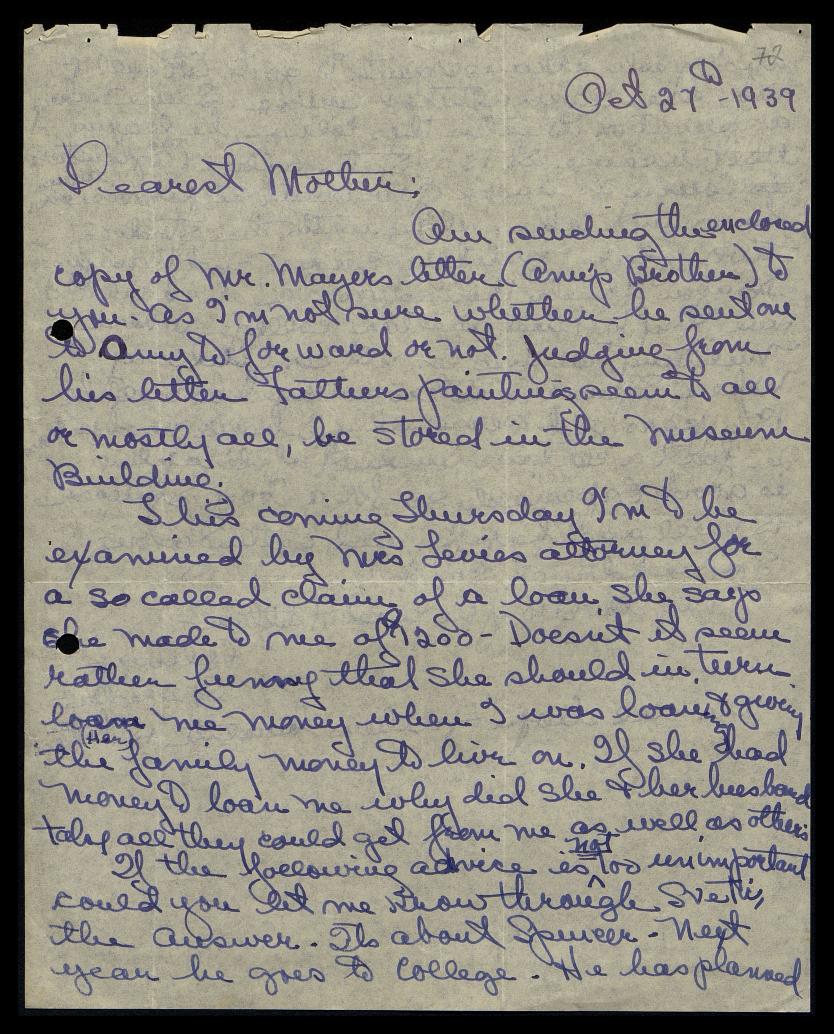 72
Oct 27th - 1939
Dearest Mother;
Am sending the enclosed
copy of Mr. Mayers letter (Amy's Brother) to
you. as I'm not sure whether he sent one
to Amy to forward or not. Judging from
his letter Fathers paintings seem to all
or mostly all, be stored in the Museum
Building.
This coming Thursday I'm to be
examined by Mrs Levies attorney for
a so called claim of a loan she says
she made to me of $1200 - Doesn't it seem
rather funny that she should in turn
loan me money when I was loaning & giving
(Her)
the family money to live on. If she had
money to loan me why did she & her husband
take all they could get from me as well as others
not
If the following advice is ^ too unimportant
could you let me know through
the answer. Its about Spencer. Next
year he goes to College. He has planned